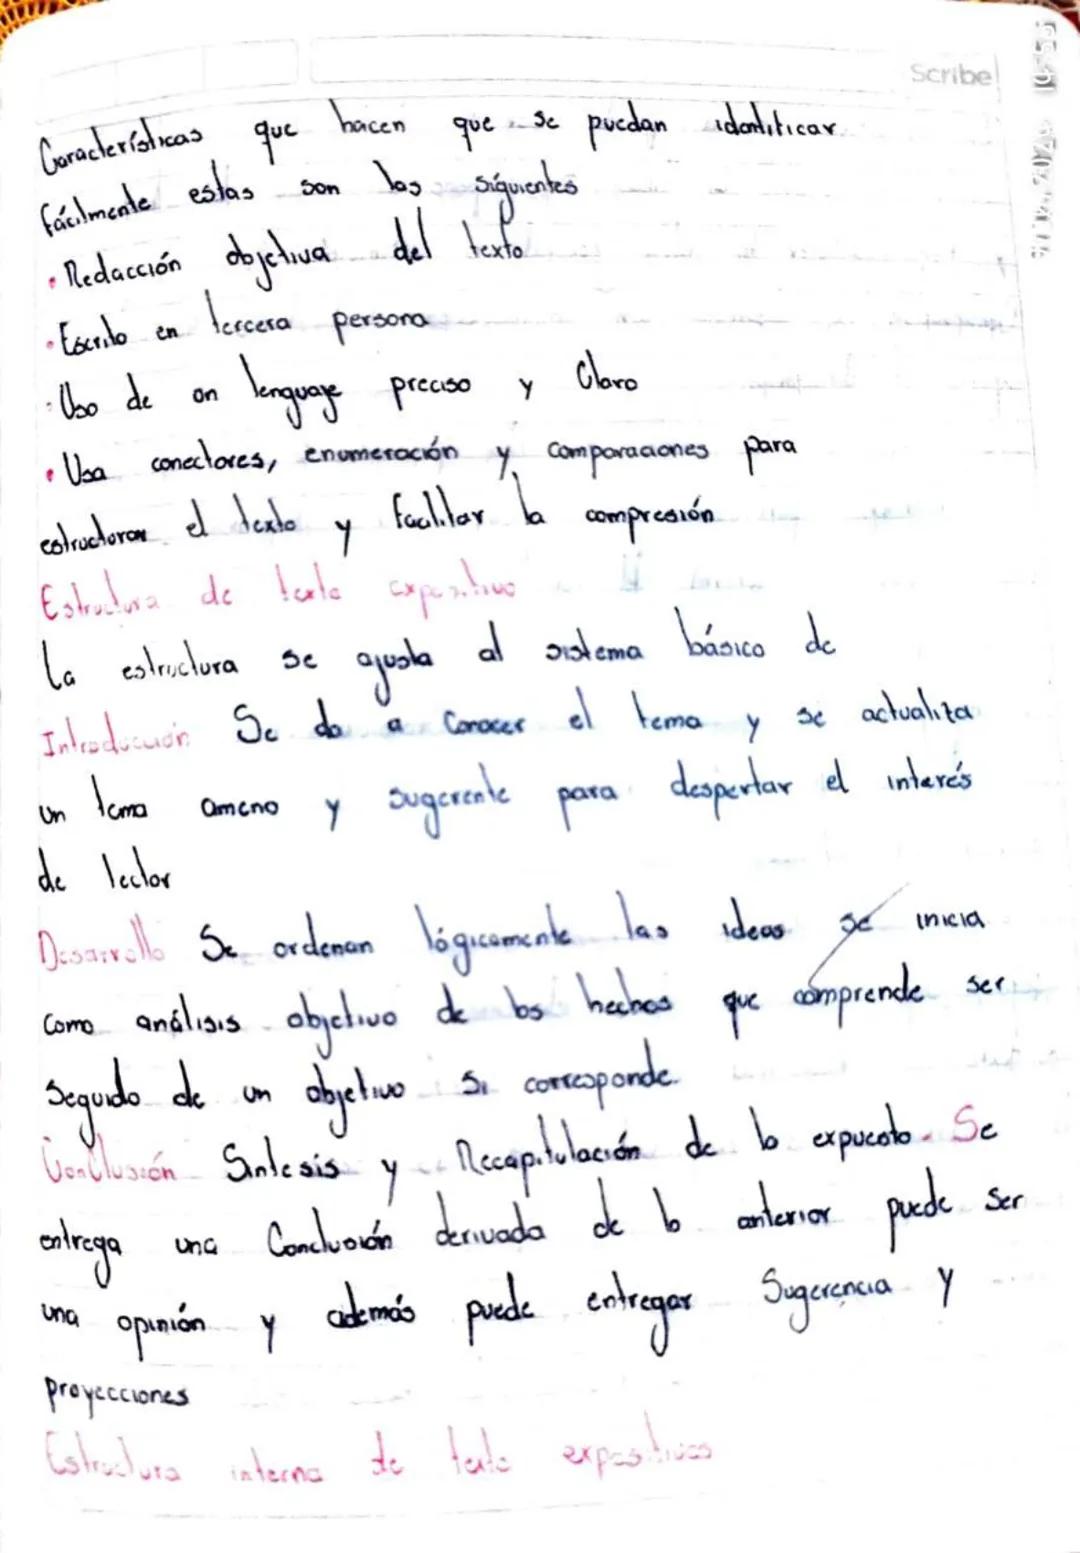 Scribe
Características que hacen que se puedan identificar
fácilmente estas son las siguientes
• Redacción objetiva del texto
• Escrito en tercera persona
• Uso de un lenguaje preciso y Claro
• Usa conectores, enumeración y comparaciones para
estructurar el texto y facilitar la compresión
Estructura de texto expositivo
La estructura se ajusta al sistema básico de
Introducción Se da a Conocer el tema y se actualiza
un tema ameno y sugerente para despertar el interés
de lector
Desarrollo Se ordenan lógicamente las ideas se inicia
Como análisis objetivo de los hechos que comprende ser
Seguido de un objetivo si corresponde
Conclusión Sintesis y Recapitulación de lo expuesto. Se
entrega una Conclusión derivada de lo anterior puede ser
una opinión y además puede entregar Sugerencia y
proyecciones
Estructura interna de texto expositivos